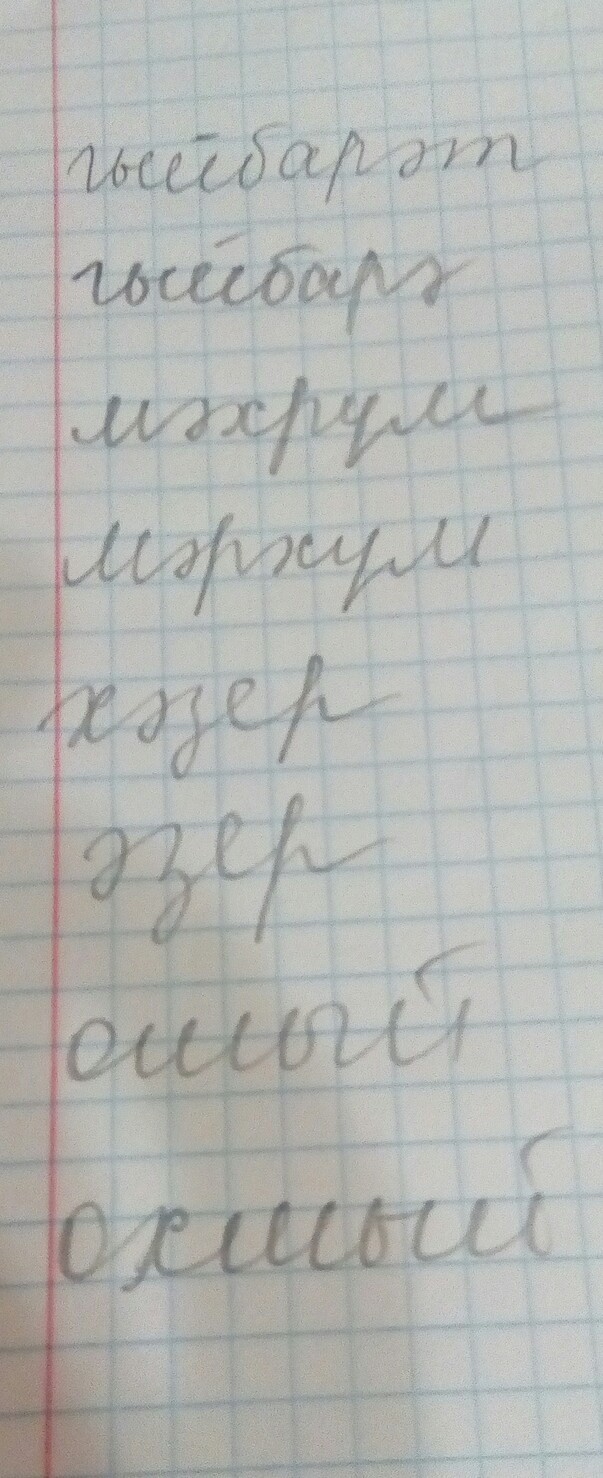 гыйбарәт
гыйбарә
мәхрум
мәрхум
хәзер
әзер
ошый
охшый